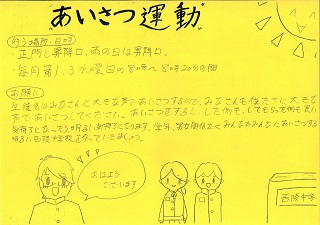 "あいさつ運動"
行う場所・日時
・正門と昇降口、雨の日は昇降口。
・毎月第1,3水曜日の8時〜8時20分の間
お願い
生徒会はみなさんに大きな声であいさつするので、みなさんも後だちに大きな
声であいさつしてください。あいさつをすると、した側も、してもらった側も良い
気持ちになったり、明るい気持ちになります。学年、男女関係なくみんなおみんなにあいさつする
明るい西陵中学校を作っていきましょう。
おはよう
ございます
西陵中学